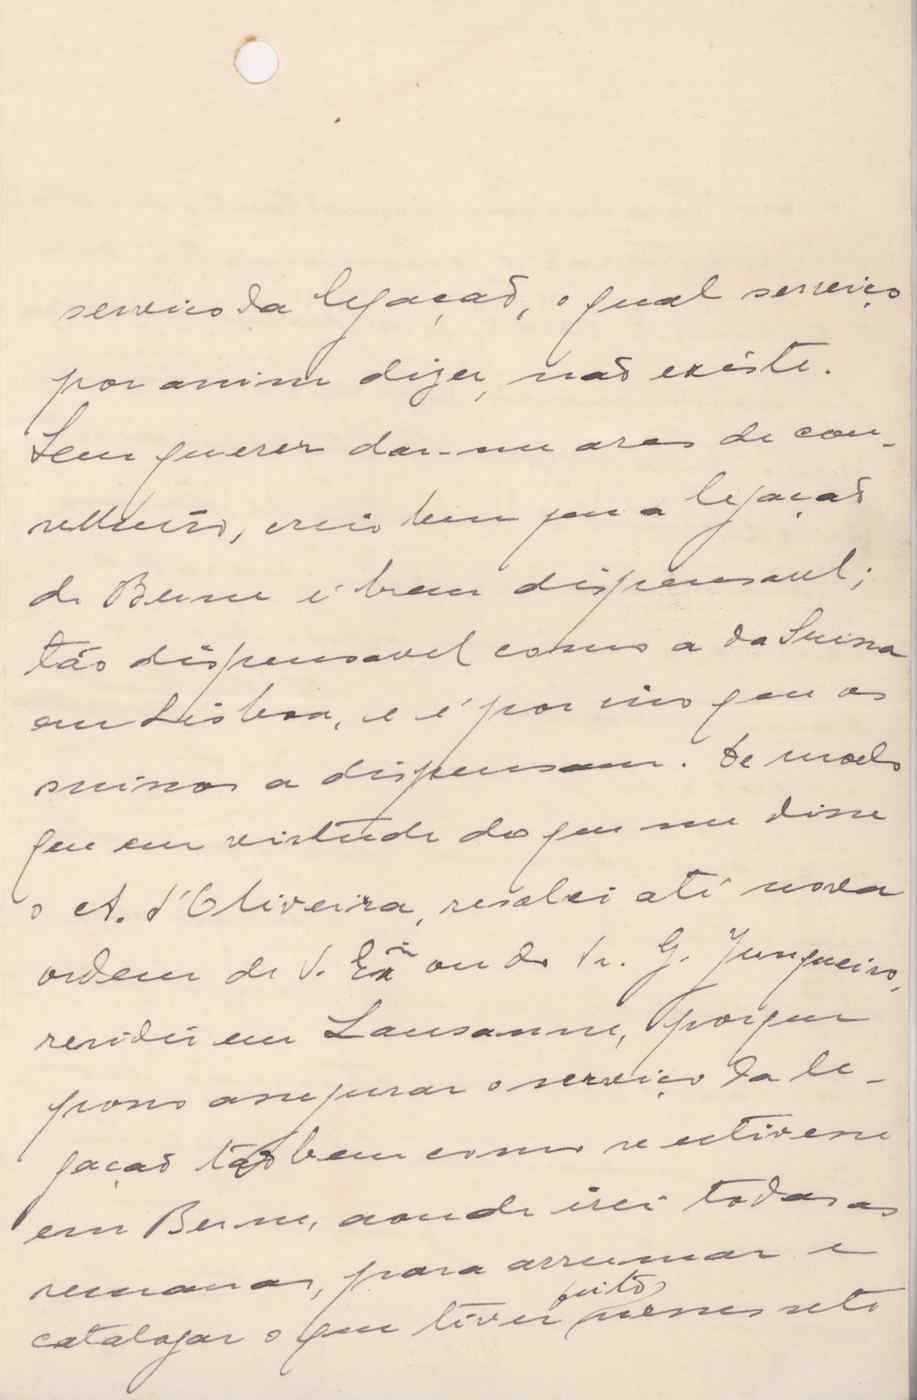 serviço da legação, o qual serviço
por assim dizer, não existe.
Sem querer dar-me ares de con-
selheiro, creio bem que a legação
de Berne é bem dispensavel;
tão dispensavel como a da Suissa
em Lisboa, e é por isso que os
suissos a dispensam. De modo
que em virtude do que me disse
o A. d'Oliveira, resolvi até nova
ordem de V. Exª ou do Sr. G. Junqueiro,
residir em Lausanne, porque
posso assegurar o serviço da le-
gação tão bem como se estivesse
em Berne, aonde irei todas as
semanas, para arrumar e
catalogar o que tiver feito nesses sete